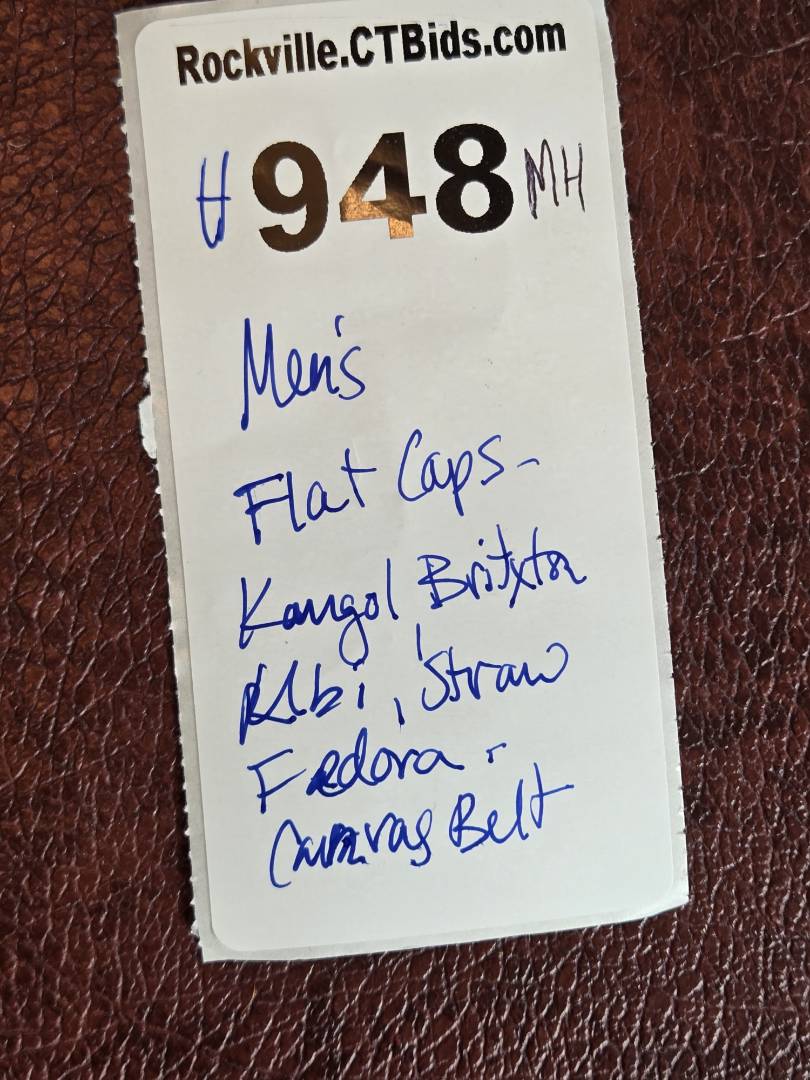 Rockville.CTBids.com
948 MH
Men's
Flat Caps-
Kangol, Britxton
Klbi, Straw
Fedora -
Canvas Belt